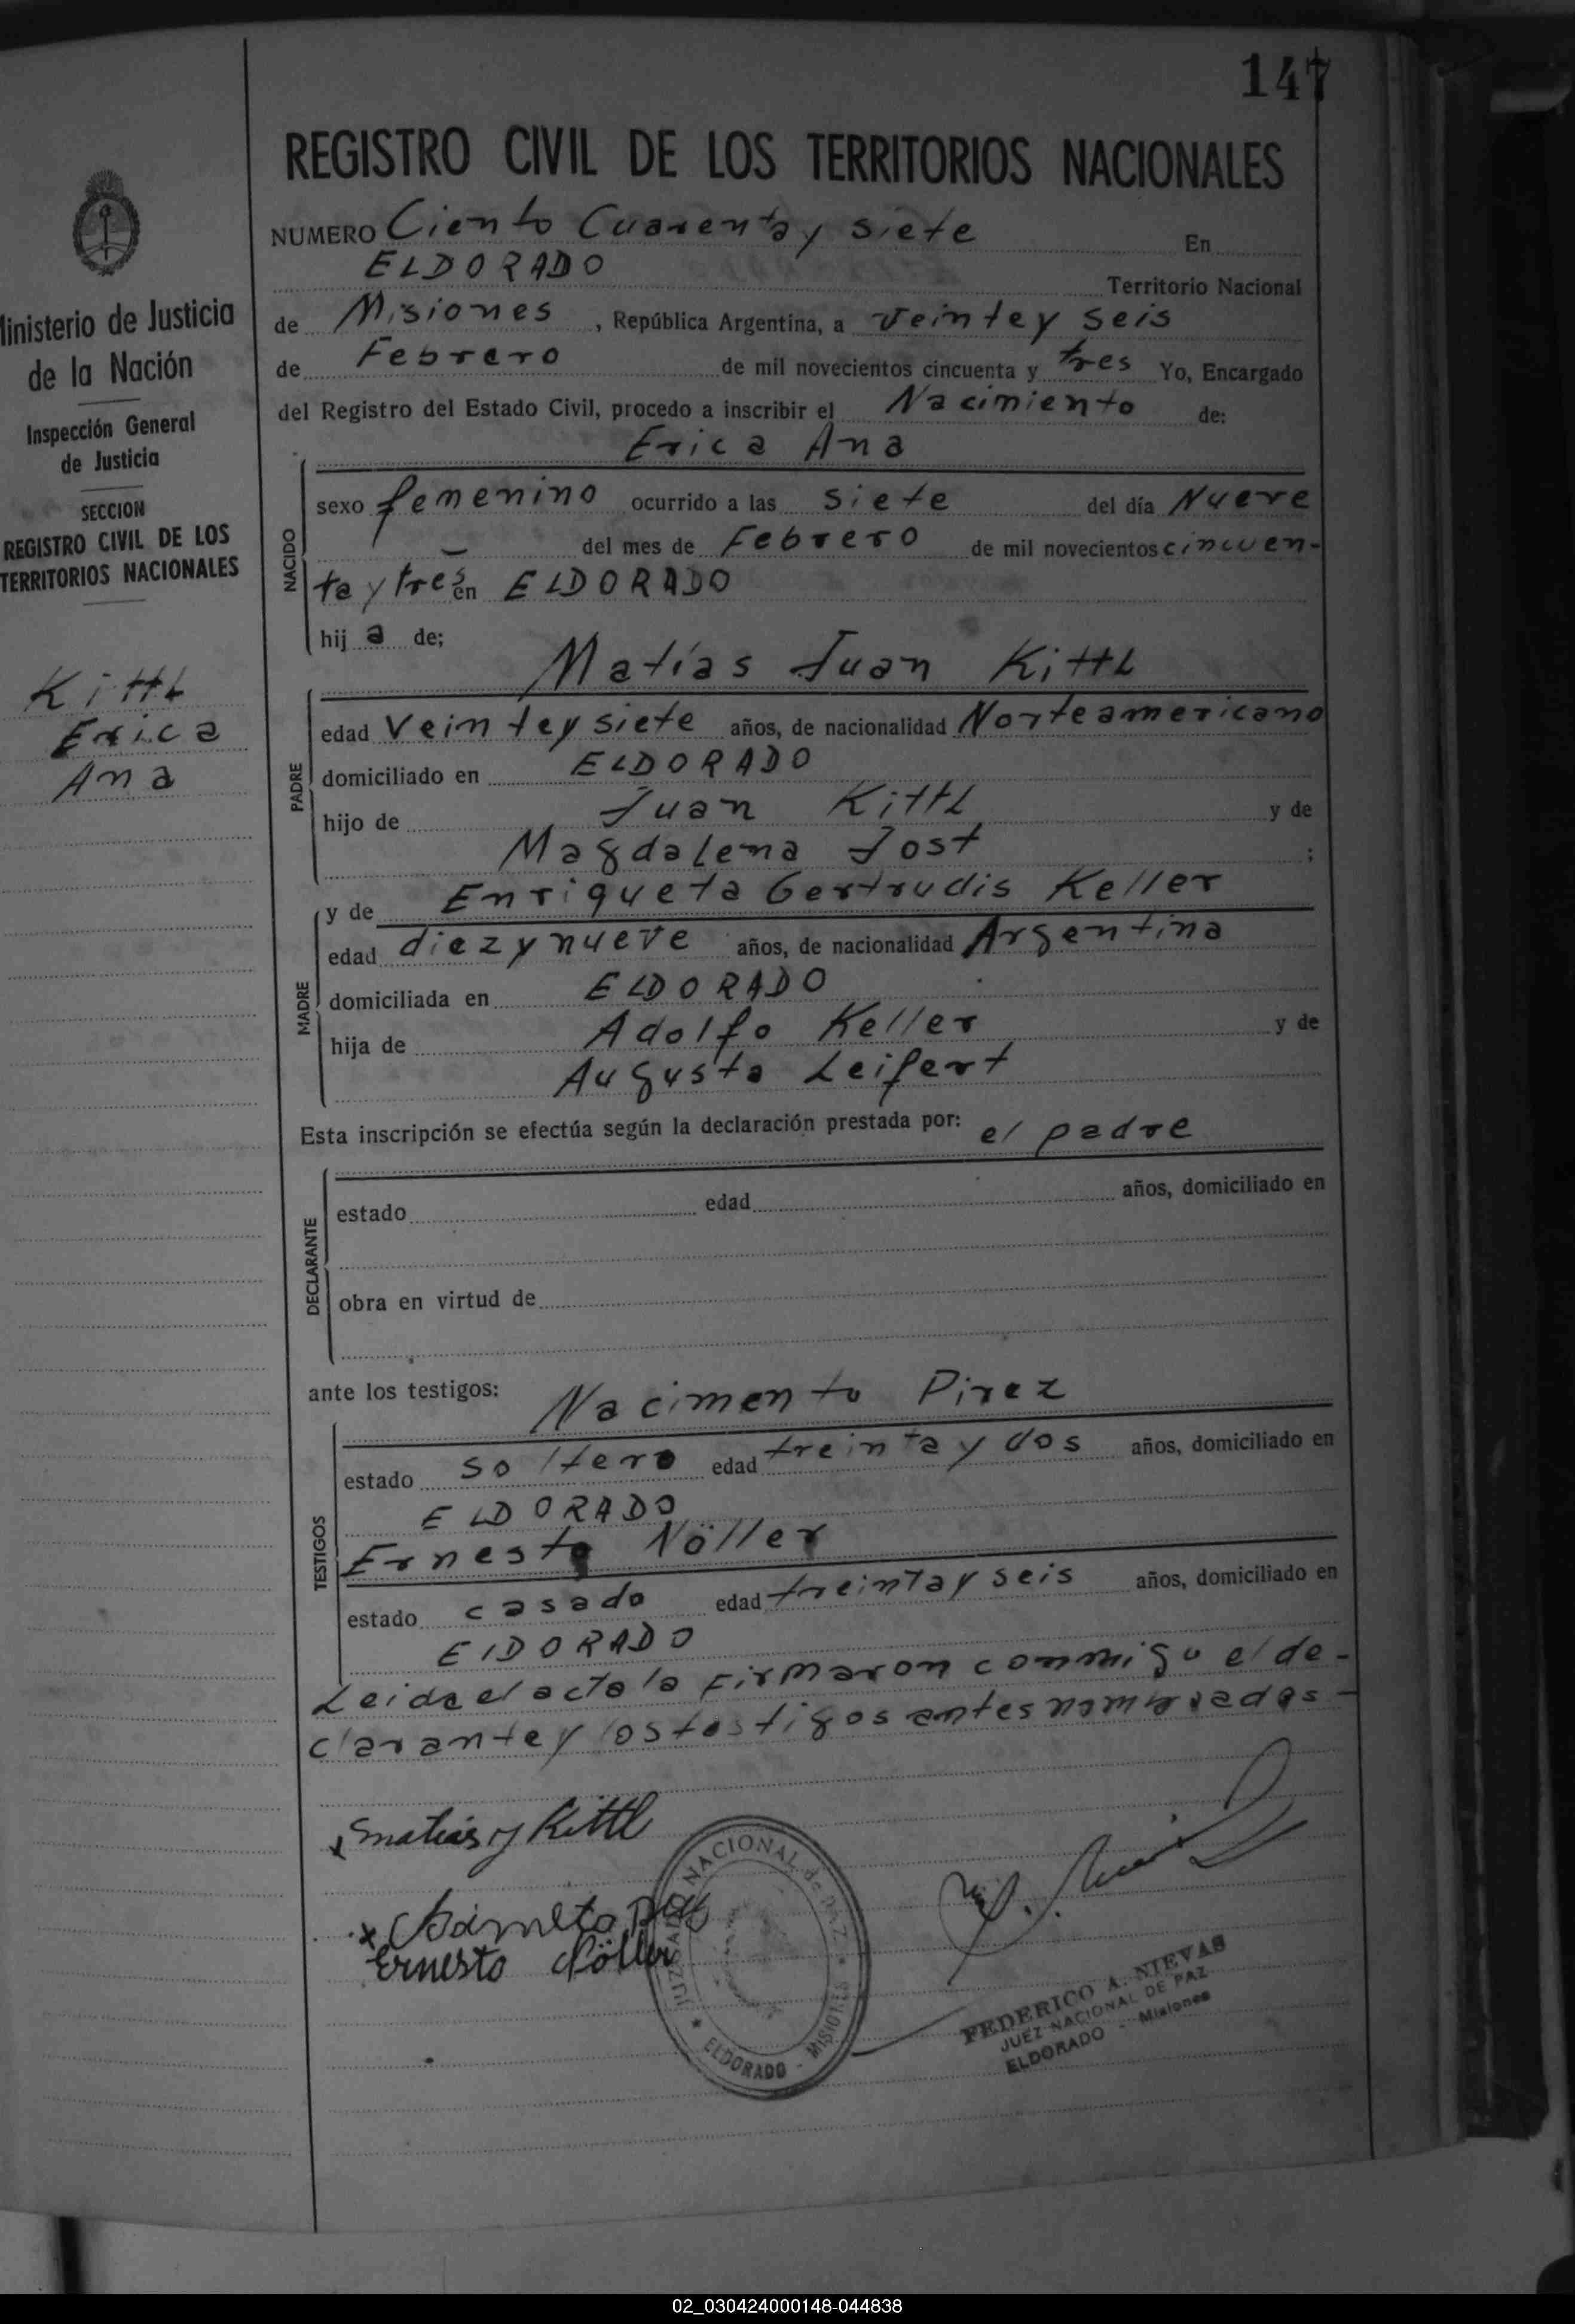 147
REGISTRO CIVIL DE LOS TERRITORIOS NACIONALES
NUMERO Ciento Cuarenta y siete En
ELDORADO
Territorio Nacional
de Misiones, República Argentina, a veinte y seis
de Febrero de mil novecientos cincuenta y tres Yo, Encargado
del Registro del Estado Civil, procedo a inscribir el Nacimiento de:
Erica Ana
NACIDO
sexo femenino ocurrido a las siete del día Nueve
del mes de Febrero de mil novecientos cincuen-
ta y tres en ELDORADO
hija de;
Matías Juan Kittl
PADRE
edad Veinte y siete años, de nacionalidad Norteamericano
domiciliado en ELDORADO
hijo de Juan Kittl y de
Magdalena Jost ;
y de Enriqueta Gertrudis Keller
MADRE
edad diez y nueve años, de nacionalidad Argentina
domiciliada en ELDORADO
hija de Adolfo Keller y de
Augusta Leifert
Esta inscripción se efectúa según la declaración prestada por: el padre
DECLARANTE
estado edad años, domiciliado en
obra en virtud de
ante los testigos: Nacimento Pirez
TESTIGOS
estado soltero edad treinta y dos años, domiciliado en
ELDORADO
Ernesto Nöller
estado casado edad treinta y seis años, domiciliado en
ElDORADO
Leida el acta la firmaron conmigo el de-
clarante y los testigos antes nombrados-
Matias J Kittl
Ernesto Nöller
JUZGADO NACIONAL de PAZ
ELDORADO - MISIONES
FEDERICO A. NIEVAS
JUEZ NACIONAL DE PAZ
ELDORADO - Misiones
Ministerio de Justicia
de la Nación
Inspección General
de Justicia
SECCION
REGISTRO CIVIL DE LOS
TERRITORIOS NACIONALES
Kittl
Erica
Ana
02_030424000148-044838